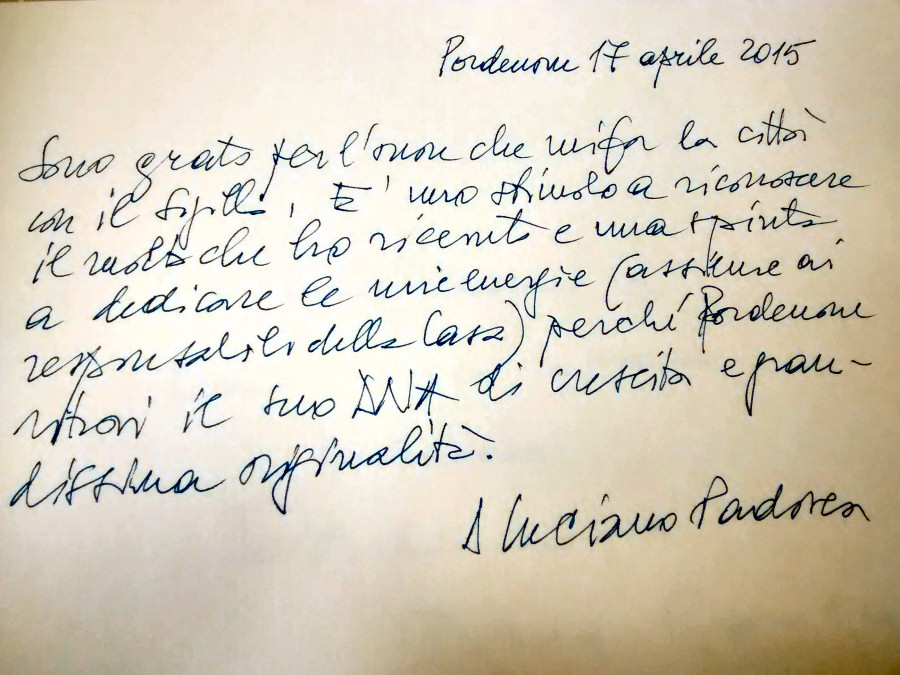 Pordenone 17 aprile 2015
Sono grato per l'onore che mi fa la città
con il Sigillo. E' uno stimolo a riconoscere
il molto che ho ricevuto e una spinta
a dedicare le mie energie (assieme ai
responsabili della Casa) perché Pordenone
ritrovi il suo DNA di crescita e gran-
dissima originalità.
d Luciano Padovese